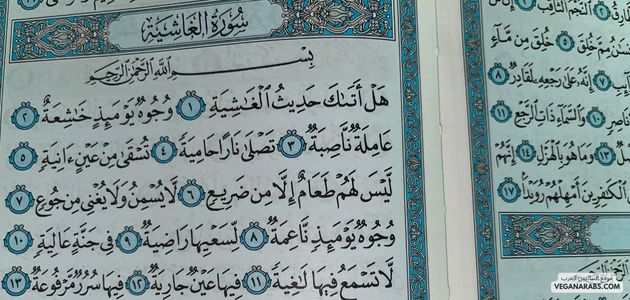 سُورَةُ الْغَاشِيَةِ
بِسْمِ اللَّهِ الرَّحْمَٰنِ الرَّحِيمِ
هَلْ أَتَىٰكَ حَدِيثُ الْغَٰشِيَةِ ١ وُجُوهٌ يَوْمَئِذٍ خَٰشِعَةٌ ٢
عَامِلَةٌ نَّاصِبَةٌ ٣ تَصْلَىٰ نَارًا حَامِيَةً ٤ تُسْقَىٰ مِنْ عَيْنٍ ءَانِيَةٍ ٥
لَّيْسَ لَهُمْ طَعَامٌ إِلَّا مِن ضَرِيعٍ ٦ لَّا يُسْمِنُ وَلَا يُغْنِي مِن جُوعٍ ٧
وُجُوهٌ يَوْمَئِذٍ نَّاعِمَةٌ ٨ لِّسَعْيِهَا رَاضِيَةٌ ٩ فِي جَنَّةٍ عَالِيَةٍ ١٠
لَّا تَسْمَعُ فِيهَا لَٰغِيَةً ١١ فِيهَا عَيْنٌ جَارِيَةٌ ١٢ فِيهَا سُرُرٌ مَّرْفُوعَةٌ ١٣
النَّجْمُ الثَّاقِبُ
مِمَّ خُلِقَ ٥ خُلِقَ مِن مَّآءٍ
إِنَّهُ عَلَىٰ رَجْعِهِ لَقَادِرٌ ٨
نَاصِرٍ ١٠ وَالسَّمَآءِ ذَاتِ الرَّجْعِ ١١
وَمَا هُوَ بِالْهَزْلِ ١٤ إِنَّهُمْ
الْكَٰفِرِينَ أَمْهِلْهُمْ رُوَيْدًا ١٧
موقع النباتيين العرب
VEGANARABS.COM